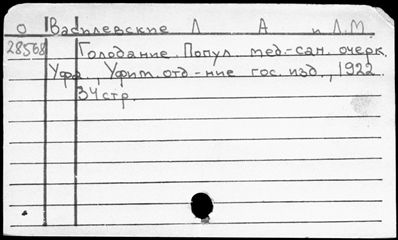 О Василевские Л А и Л.М.
28568 Голодание. Попул. мед-сан. очерк.
Уфа, Уфим. отд-ние гос. изд., 1922
34 стр.